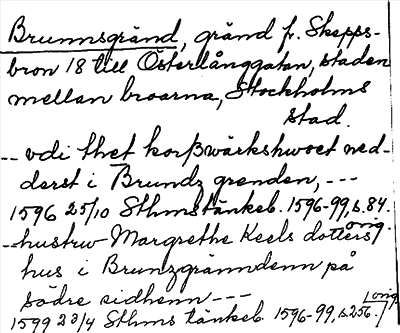 Brunnsgränd, gränd fr. Skepps-
bron 18 till Österlånggatan, staden
mellan broarna, Stockholms
stad.
-- vdi thet korßwärkshwset ned-
derst i Brundz grenden, ---
1596 25/10 Sthms tänkeb. 1596-99, s. 84.
orig.
-- hustrw Margrethe Keels dotters
hus i Brunzgränndenn på
södre sidhenn ---
orig.
1599 23/4 Sthms tänkeb. 1596-99, s. 256.